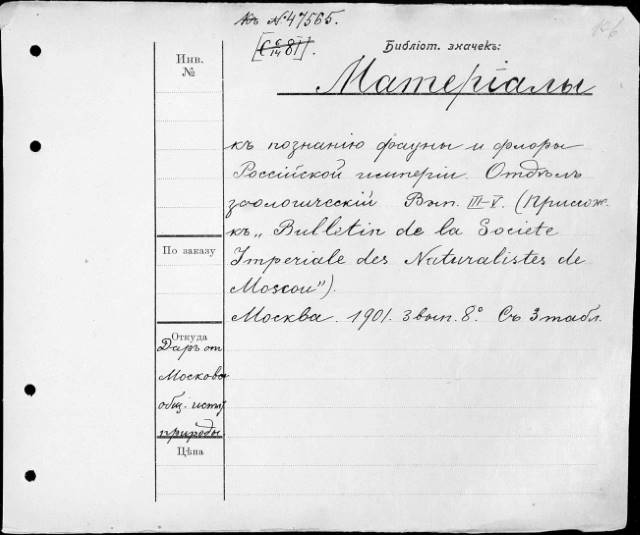 къ № 47565.
К 6
Инв.
№
Библіот. значекъ:
Матеріалы
къ познанію фауны и флоры
Россійской имперіи. Отдѣлъ
зоологическій Вып. III-V. (Прилож.
къ „Bulletin de la Societe
Imperiale des Naturalistes de
Moscou").
Москва. 1901. 3 вып. 8°. Съ 3 табл.
По заказу
Откуда
Даръ от
Московск
общ. испыт
природы.
Цѣна